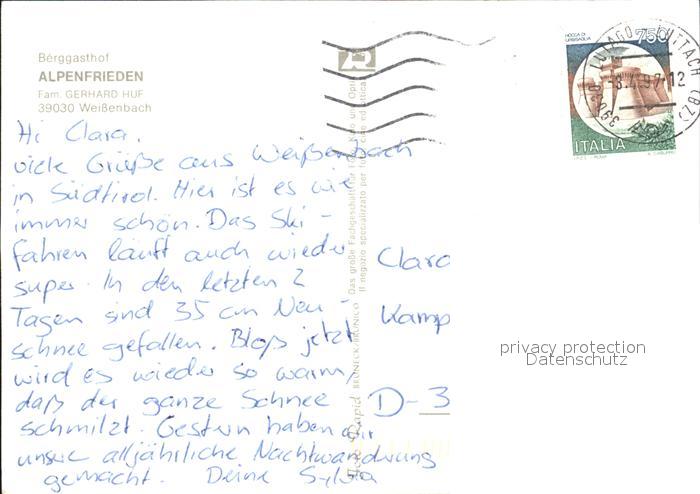 Berggasthof
ALPENFRIEDEN
Fam. GERHARD HUF
39030 Weißenbach
Hi Clara,
viele Grüße aus Weißenbach
in Südtirol. Hier ist es wie
immer schön. Das Ski-
fahren läuft auch wieder
super. In den letzten 2
Tagen sind 35 cm Neu-
schnee gefallen. Bloß jetzt
wird es wieder so warm,
daß der ganze Schnee
schmilzt. Gestern haben wir
unsere alljährliche Nachtwanderung
gemacht. Deine Sylvia
Foto Rapid BRUNECK-BRUNICO
Das große Fachgeschäft für Foto und Optik
Il negozio specializzato per foto ed ottica
ROCCA DI URBISAGLIA
750
ITALIA
LUTAGO LUTTACH (BZ)
39030
-3.4.97-12
Clara
Kamp
D-3
privacy protection
Datenschutz